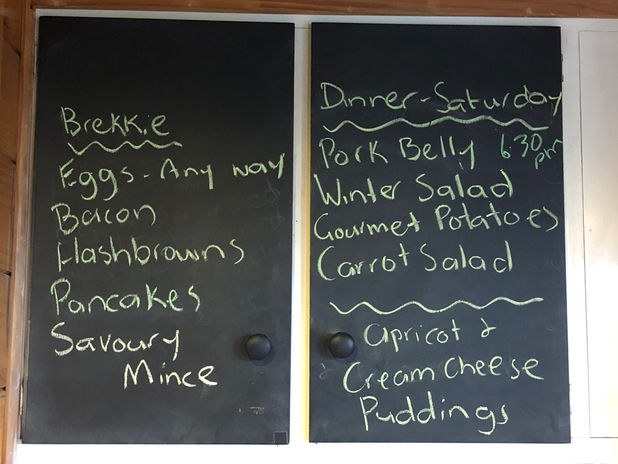 Brekkie
Eggs - Any way
Bacon
Hashbrowns
Pancakes
Savoury
Mince
Dinner - Saturday
Pork Belly 6 30 pm
Winter Salad
Gourmet Potatoes
Carrot Salad
apricot &
Cream Cheese
Puddings